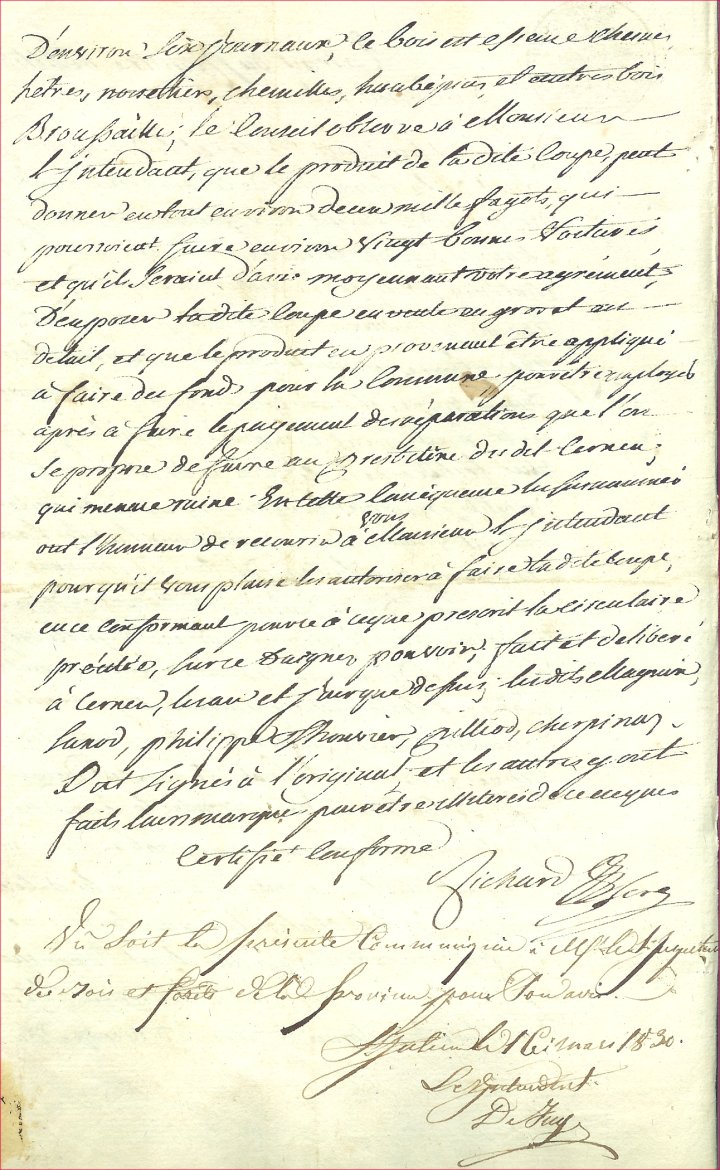 D'environ six journaux, le bois est essence chesnes
hêtres, noisetiers, chemilles, haubépins, et autres bois
Broussaille; le Conseil observe à Monsieur
L'Intendant, que le produit de ladite Coupe, peut
donner en tout environ deux mille fagots, qui
pourroient faire environ vingt bonnes voitures
et qu'ils seraient d'avis moyennant votre agrément,
D'exposer ladite Coupe en vente en gros et au
detail, et que le produit en provenant être appliqué
à faire des fonds pour la Commune pour être employés
après à faire le payement des réparations que l'on
se propose de faire au Presbitère du dit Cernex,
qui menace ruine. En telle conséquence les susnommés
ont l'honneur de recourir à vous Monsieur l'Intendant
pour qu'il vous plaise les autoriser à faire ladite Coupe,
en ce conformant pour ce à ce que prescrit la circulaire
précitée, sur ce Daignez pouvoir, fait et deliberé
à Cernex, les an et jour que dessus; les dits Magnin,
philippe Thouvier, Cherpinaz
Dat signés à l'original et les autres y ont
faits leurs marque pour être illiterés de ce acques
Certifié Conforme
Richard Sere
Vu soit la présente Communiquée à Mr. le Sr. Inspecteur
des Bois et forêts de la de Province pour Son avis.
St Julien le 16 mars 1830.
Le Intendant